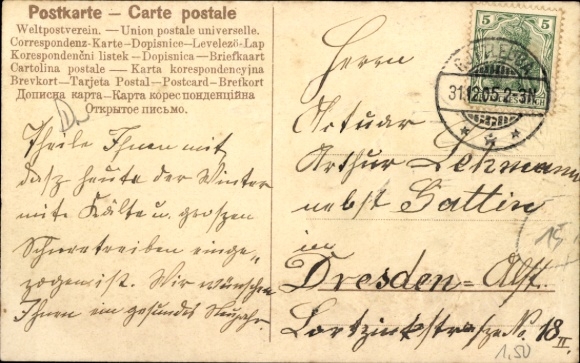 Postkarte – Carte postale
Weltpostverein. — Union postale universelle.
Correspondenz-Karte–Dopisnice–Levelező-Lap
Korespondenční listek–Dopisnica–Briefkaart
Cartolina postale — Karta korespondencyjna
Brevkort–Tarjeta Postal–Postcard–Brefkort
Дописна карта–Карта кореспонденційна
Открытое письмо.
Theile Ihnen mit
dasz heute der Winter
mite Kälte u. groszen
Schneetreiben einge„
zogen ist. Wir wünschen
Ihnen ein gesundes Neujahr
5 5
31.12.05.2-3N.
Herrn
Actuar
Arthur Lehmann
nebst Gattin
in
Dresden=Altst.
Lortzingstrasze No. 18 II.
15
1,50